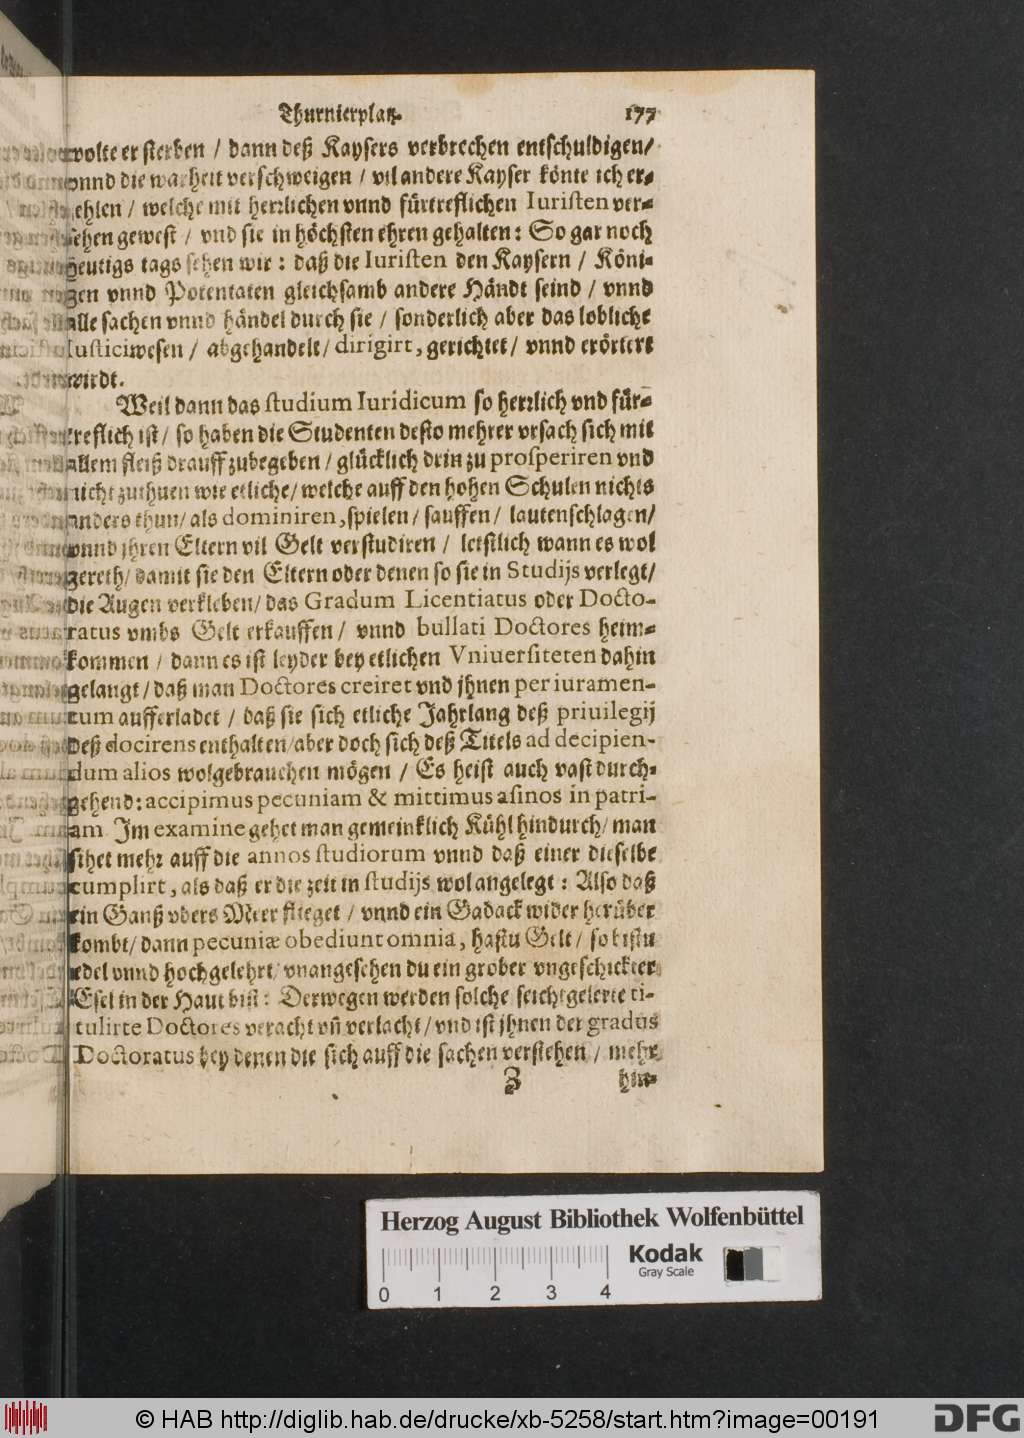 Thurnierplatz. 177
wolte er sterben / dann deß Kaysers verbrechen entschuldigen/
vnnd die warheit verschweigen / vil andere Kayser könte ich er-
zehlen / welche mit herrlichen vnnd fürtreflichen Iuristen ver-
sehen gewest / vnd sie in höchsten ehren gehalten: So gar noch
heutigs tags sehen wir: daß die Iuristen den Kaysern / Köni-
gen vnnd Potentaten gleichsamb andere Händt seind / vnnd
alle sachen vnnd händel durch sie / sonderlich aber das lobliche
Iusticiwesen / abgehandelt/ dirigirt, gerichtet/ vnnd erörtert
wirdt.
Weil dann das studium Iuridicum so herrlich vnd für-
treflich ist / so haben die Studenten desto mehrer vrsach sich mit
allem fleiß drauff zubegeben / glücklich drin zu prosperiren vnd
nicht zuthuen wie etliche/ welche auff den hohen Schulen nichts
anders thun/ als dominiren, spielen/ sauffen/ lautenschlagen/
vnnd jhren Eltern vil Gelt verstudiren / letstlich wann es wol
gereth/ damit sie den Eltern oder denen so sie in Studijs verlegt/
die Augen verkleben/ das Gradum Licentiatus oder Docto-
ratus vmbs Gelt erkauffen/ vnnd bullati Doctores heim-
kommen / dann es ist leyder bey etlichen Vniuersiteten dahin
gelangt/ daß man Doctores creiret vnd jhnen per iuramen-
tum aufferladet / daß sie sich etliche Jahrlang deß priuilegij
deß docirens enthalten/ aber doch sich deß Titels ad decipien-
dum alios wolgebrauchen mögen / Es heist auch vast durch-
gehend: accipimus pecuniam & mittimus asinos in patri-
am Im examine gehet man gemeinklich Kühl hindurch/ man
sihet mehr auff die annos studiorum vnnd daß einer dieselbe
cumplirt, als daß er die zeit in studijs wol angelegt: Also daß
ein Ganß vbers Meer flieget / vnnd ein Gadack wider herüber
kombt/ dann pecuniæ obediunt omnia, hastu Gelt / so bistu
edel vnnd hochgelehrt/ vnangesehen du ein grober vngeschickter
Esel in der Haut bist: Derwegen werden solche seichtgelerte ti-
tulirte Doctores veracht vñ verlacht/ vnd ist jhnen der gradus
Doctoratus bey denen die sich auff die sachen verstehen / mehr
Z hin-
Herzog August Bibliothek Wolfenbüttel
Kodak
Gray Scale
0 1 2 3 4
© HAB http://diglib.hab.de/drucke/xb-5258/start.htm?image=00191
DFG